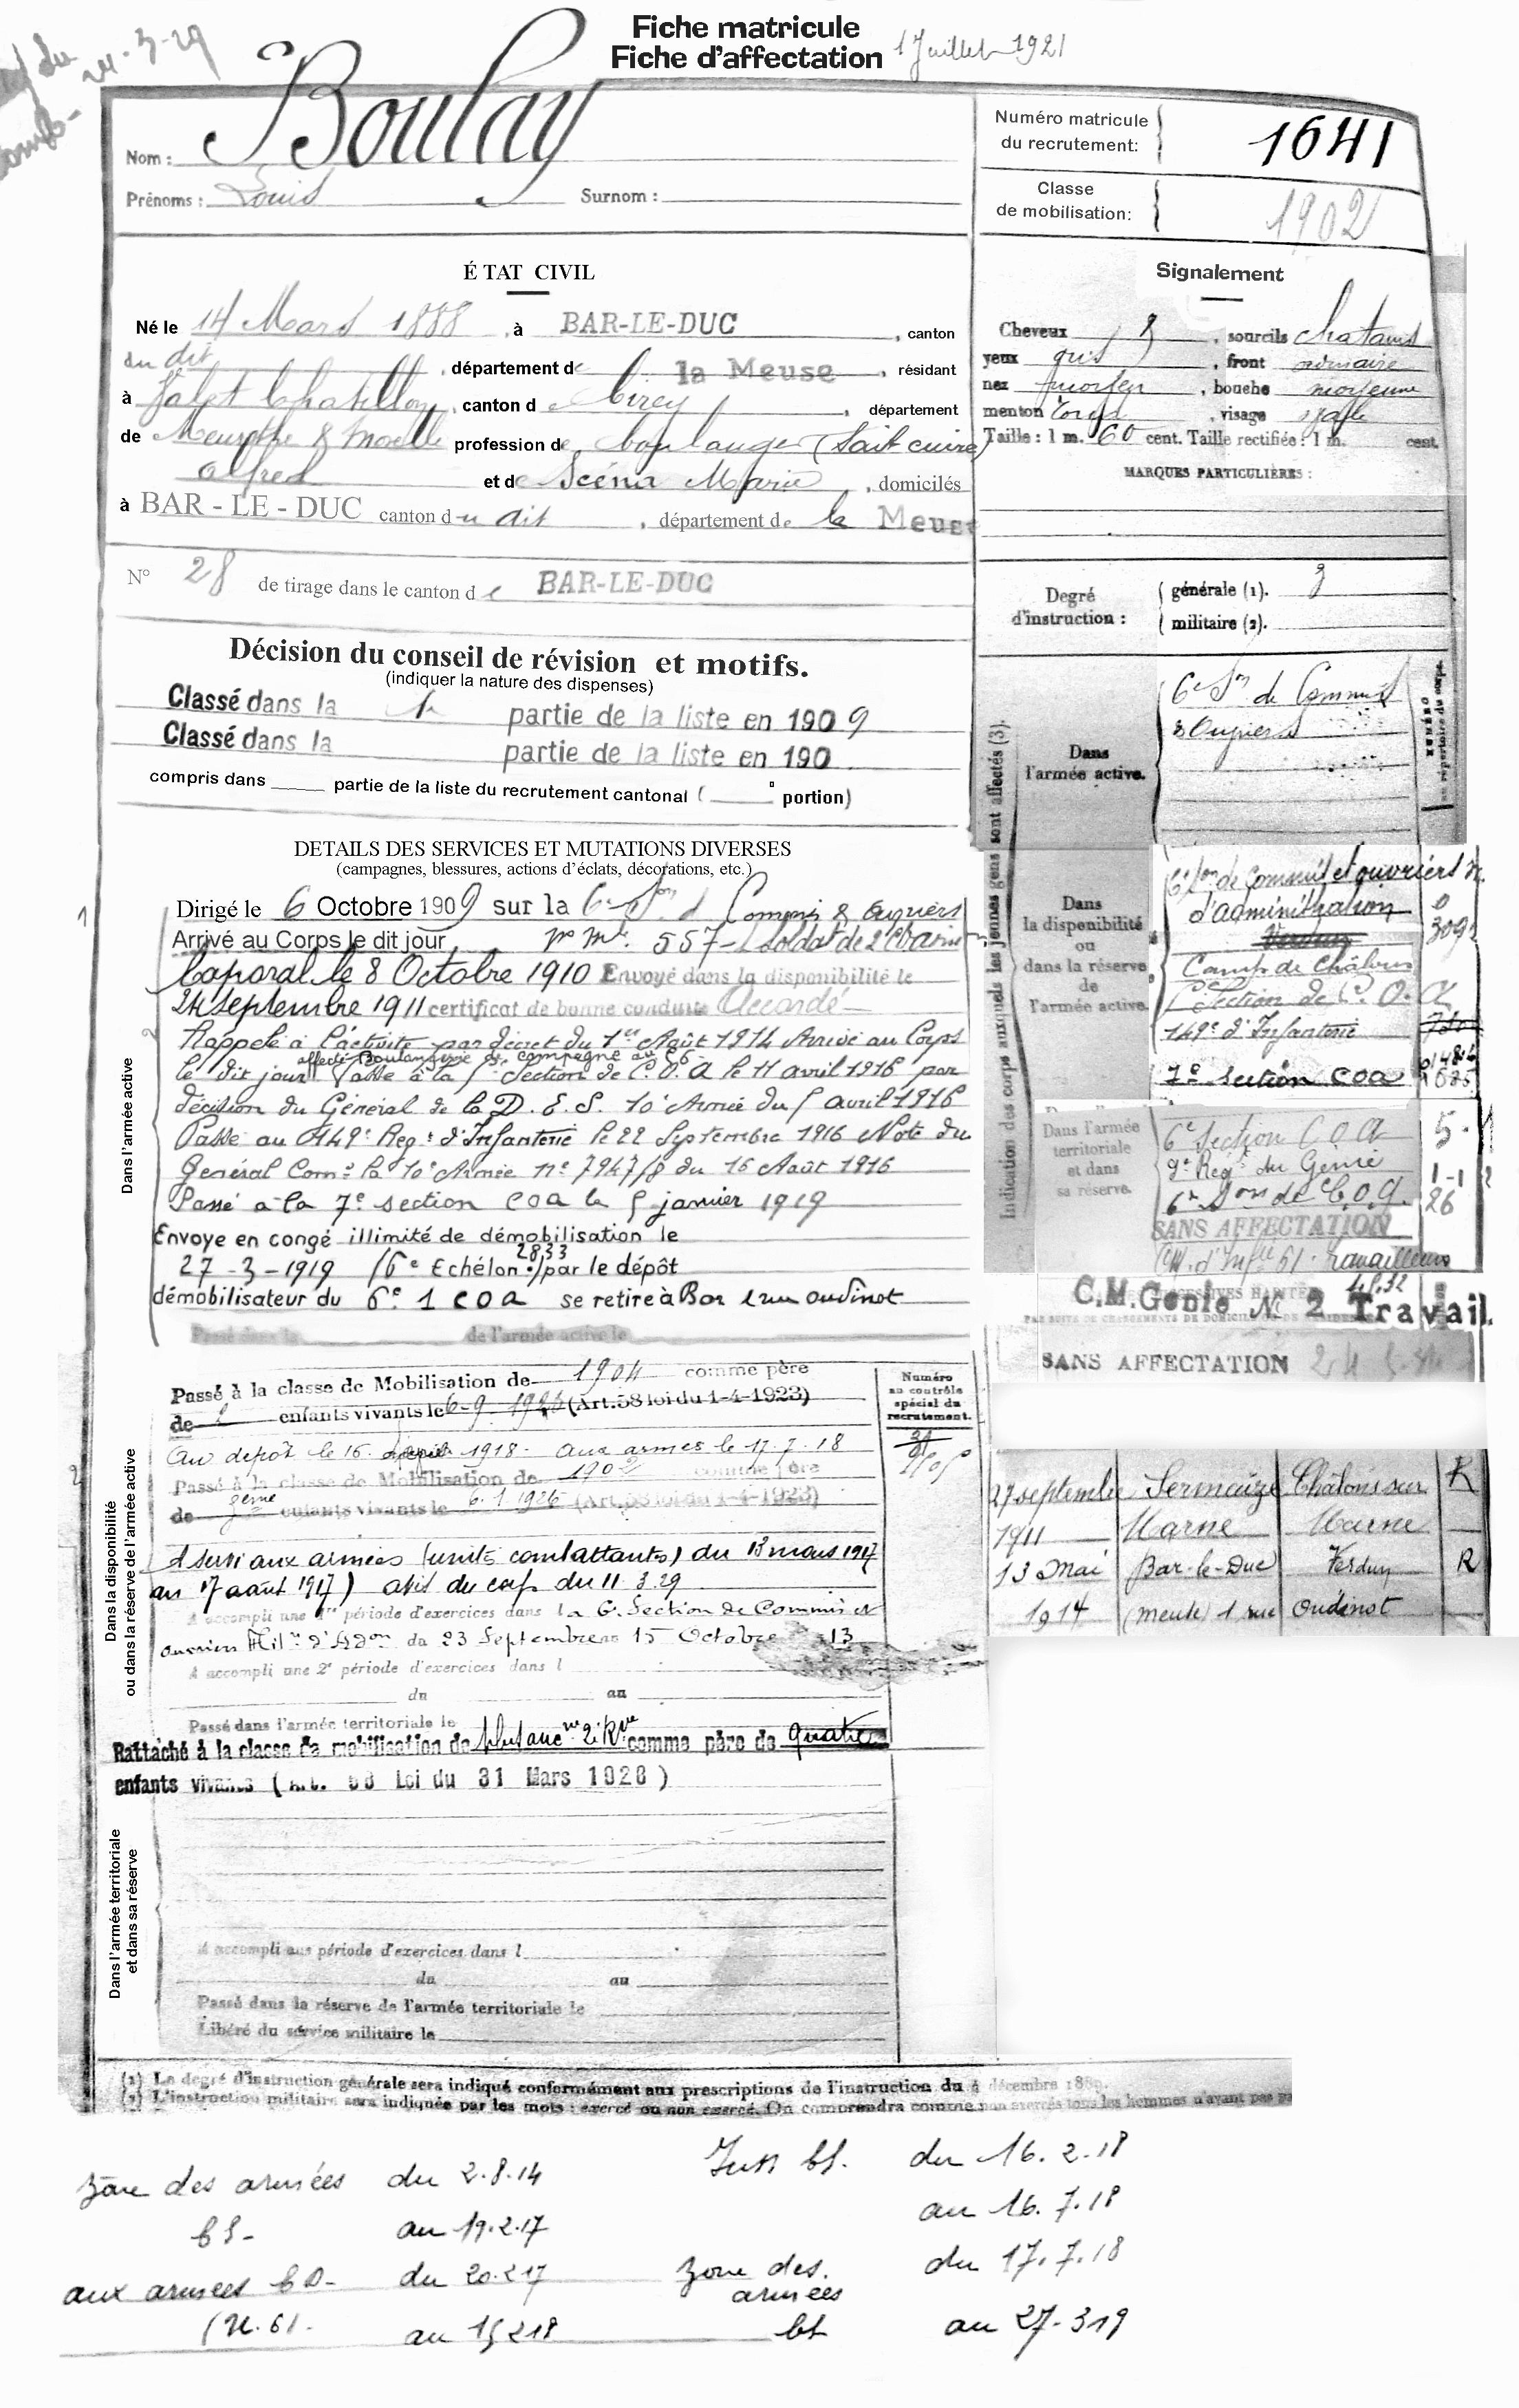 Fiche matricule
Fiche d'affectation 1 Juillet 1921
du 24-3-29
Nom : Boulay
Prénoms : Louis Surnom :
Numéro matricule du recrutement: 1641
Classe de mobilisation: 1902
ÉTAT CIVIL
Né le 14 Mars 1888, à BAR-LE-DUC, canton
du dit, département de la Meuse, résidant
à Val et Chatillon, canton de Cirey, département
de Meurthe & Moselle profession de boulanger (sait cuire)
Alfred et de Scéna Marie, domiciliés
à BAR-LE-DUC canton du dit, département de la Meuse
N° 28 de tirage dans le canton de BAR-LE-DUC
Signalement
Cheveux &, sourcils chatains
yeux gris, front ordinaire
nez moyen, bouche moyenne
menton rond, visage ovale
Taille : 1 m. 60 cent. Taille rectifiée : 1 m. cent.
MARQUES PARTICULIÈRES :
Degré d'instruction : générale (1). 3
militaire (2).
Décision du conseil de révision et motifs.
(indiquer la nature des dispenses)
Classé dans la 1e partie de la liste en 1909
Classé dans la partie de la liste en 190
compris dans ____ partie de la liste du recrutement cantonal ( ____ ° portion)
DETAILS DES SERVICES ET MUTATIONS DIVERSES
(campagnes, blessures, actions d'éclats, décorations, etc.)
Dans l'armée active
1
Dirigé le 6 Octobre 1909 sur la 6e Son d Commis & Ouvriers
Arrivé au Corps le dit jour, no mle. 557 - Soldat de 2e classe
Caporal le 8 Octobre 1910 Envoyé dans la disponibilité le
24 septembre 1911 certificat de bonne conduite Accordé
Rappelé à l'activité par décret du 1er Août 1914 Arrivé au Corps
affecté Boulangerie de campagne au C6
le dit jour Passé à la 5e Section de C.O.A le 11 avril 1916 par
décision du Général de la D.E.S. 10e Armée du 5 avril 1916
Passé au 149e Regt d'Infanterie le 22 Septembre 1916 Note du
Général Comt la 10e Armée no 7947/8 du 16 Août 1916
Passé à la 7e section COA le 5 janvier 1919
Envoye en congé illimité de démobilisation le
27-3-1919 (6e Echelon no 2833) par le dépôt
démobilisateur du 6e 1 COA se retire à Bar 1 rue oudinot
Passé dans la de l'armée active le
Indication des corps auxquels les jeunes gens sont affectés (3).
NUMÉRO au répertoire du corps.
Dans l'armée active.
6e Son de Commis
& Ouvriers
Dans la disponibilité ou dans la réserve de l'armée active.
6e Son de Commis et ouvriers
d'administration
Verdun
Camp de Châlons
5e Section de C.O.A
149e d'Infanterie
7e section COA
Dans l'armée territoriale et dans sa réserve.
6e Section C O A
9e Regt du Génie 1-1
6e Son de C.O.A. 26
SANS AFFECTATION
C.M. d'Inf 61 travailleurs
C.M.Génie No 2 Travail.
SANS AFFECTATION
Dans la disponibilité ou dans la réserve de l'armée active
Passé à la classe de Mobilisation de 1904 comme père
de 2 enfants vivants le 6-9-1926 (Art.58 loi du 1-4-1923)
Numéro au contrôle spécial du recrutement.
Au dépôt le 16 1918 - aux armes le 17.7.18
Passé à la classe de Mobilisation de 1902 comme père
de 3eme enfants vivants le 6.1 1926 (Art.58 loi du 1-4-1923)
A servi aux armées (unité combattante) du 13 mars 1917
au 17 août 1917) avis du corps du 11.3.29
A accompli une 1re période d'exercices dans la 6e Section de Commis et
ouvriers Milres d'Adon du 23 Septembre au 15 Octobre 1913
A accompli une 2e période d'exercices dans l
du au
Passé dans l'armée territoriale le
Rattaché à la classe de mobilisation de plus anc ne 2e Rve comme père de quatre
enfants vivants (Art. 58 Loi du 31 Mars 1928)
27 septembre 1911 Sermaize Marne Châlons sur Marne R
13 Mai 1914 Bar-le-Duc (Meuse) 1 rue Oudinot Verdun R
Dans l'armée territoriale et dans sa réserve
A accompli une période d'exercices dans l
du au
Passé dans la réserve de l'armée territoriale le
Libéré du service militaire le
(1) Le degré d'instruction générale sera indiqué conformément aux prescriptions de l'instruction du 4 décembre 1889.
(2) L'instruction militaire sera indiquée par les mots : exercé ou non exercé. On comprendra comme non exercés tous les hommes n'ayant pas
Zone des armées du 2.8.14
CS- au 19.2.17
aux armées CD- du 20.2.17
(N. 61. au 15.2.18
Intr CS. du 16.2.18
au 16.7.18
Zone des armées du 17.7.18
CS au 27-3 19